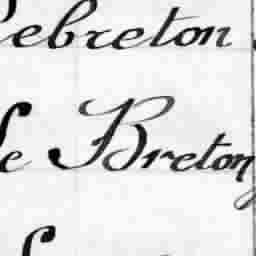 Lebreton
le Breton